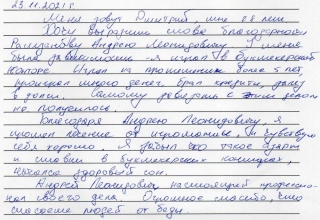 23.11.2021 г.
Меня зовут Дмитрий, мне 28 лет.
Хочу выразить слова благодарности
Андрею Леонидовичу. У меня
была зависимость - я играл в букмекерской
конторе. Играл на протяжении более 5 лет,
проиграл много денег, брал кредиты, залез
в долги. Самому справиться с этим делом
не получалось.
Благодаря Андрею Леонидовичу, я
прошел лечение от игромании, и чувствую
себя хорошо. Я забыл что такое азарт
и ставки в букмекерских конторах,
начался здоровый сон.
Андрей Леонидович настоящий професси-
онал своего дела. Огромное спасибо, что
спасаете людей от беды.